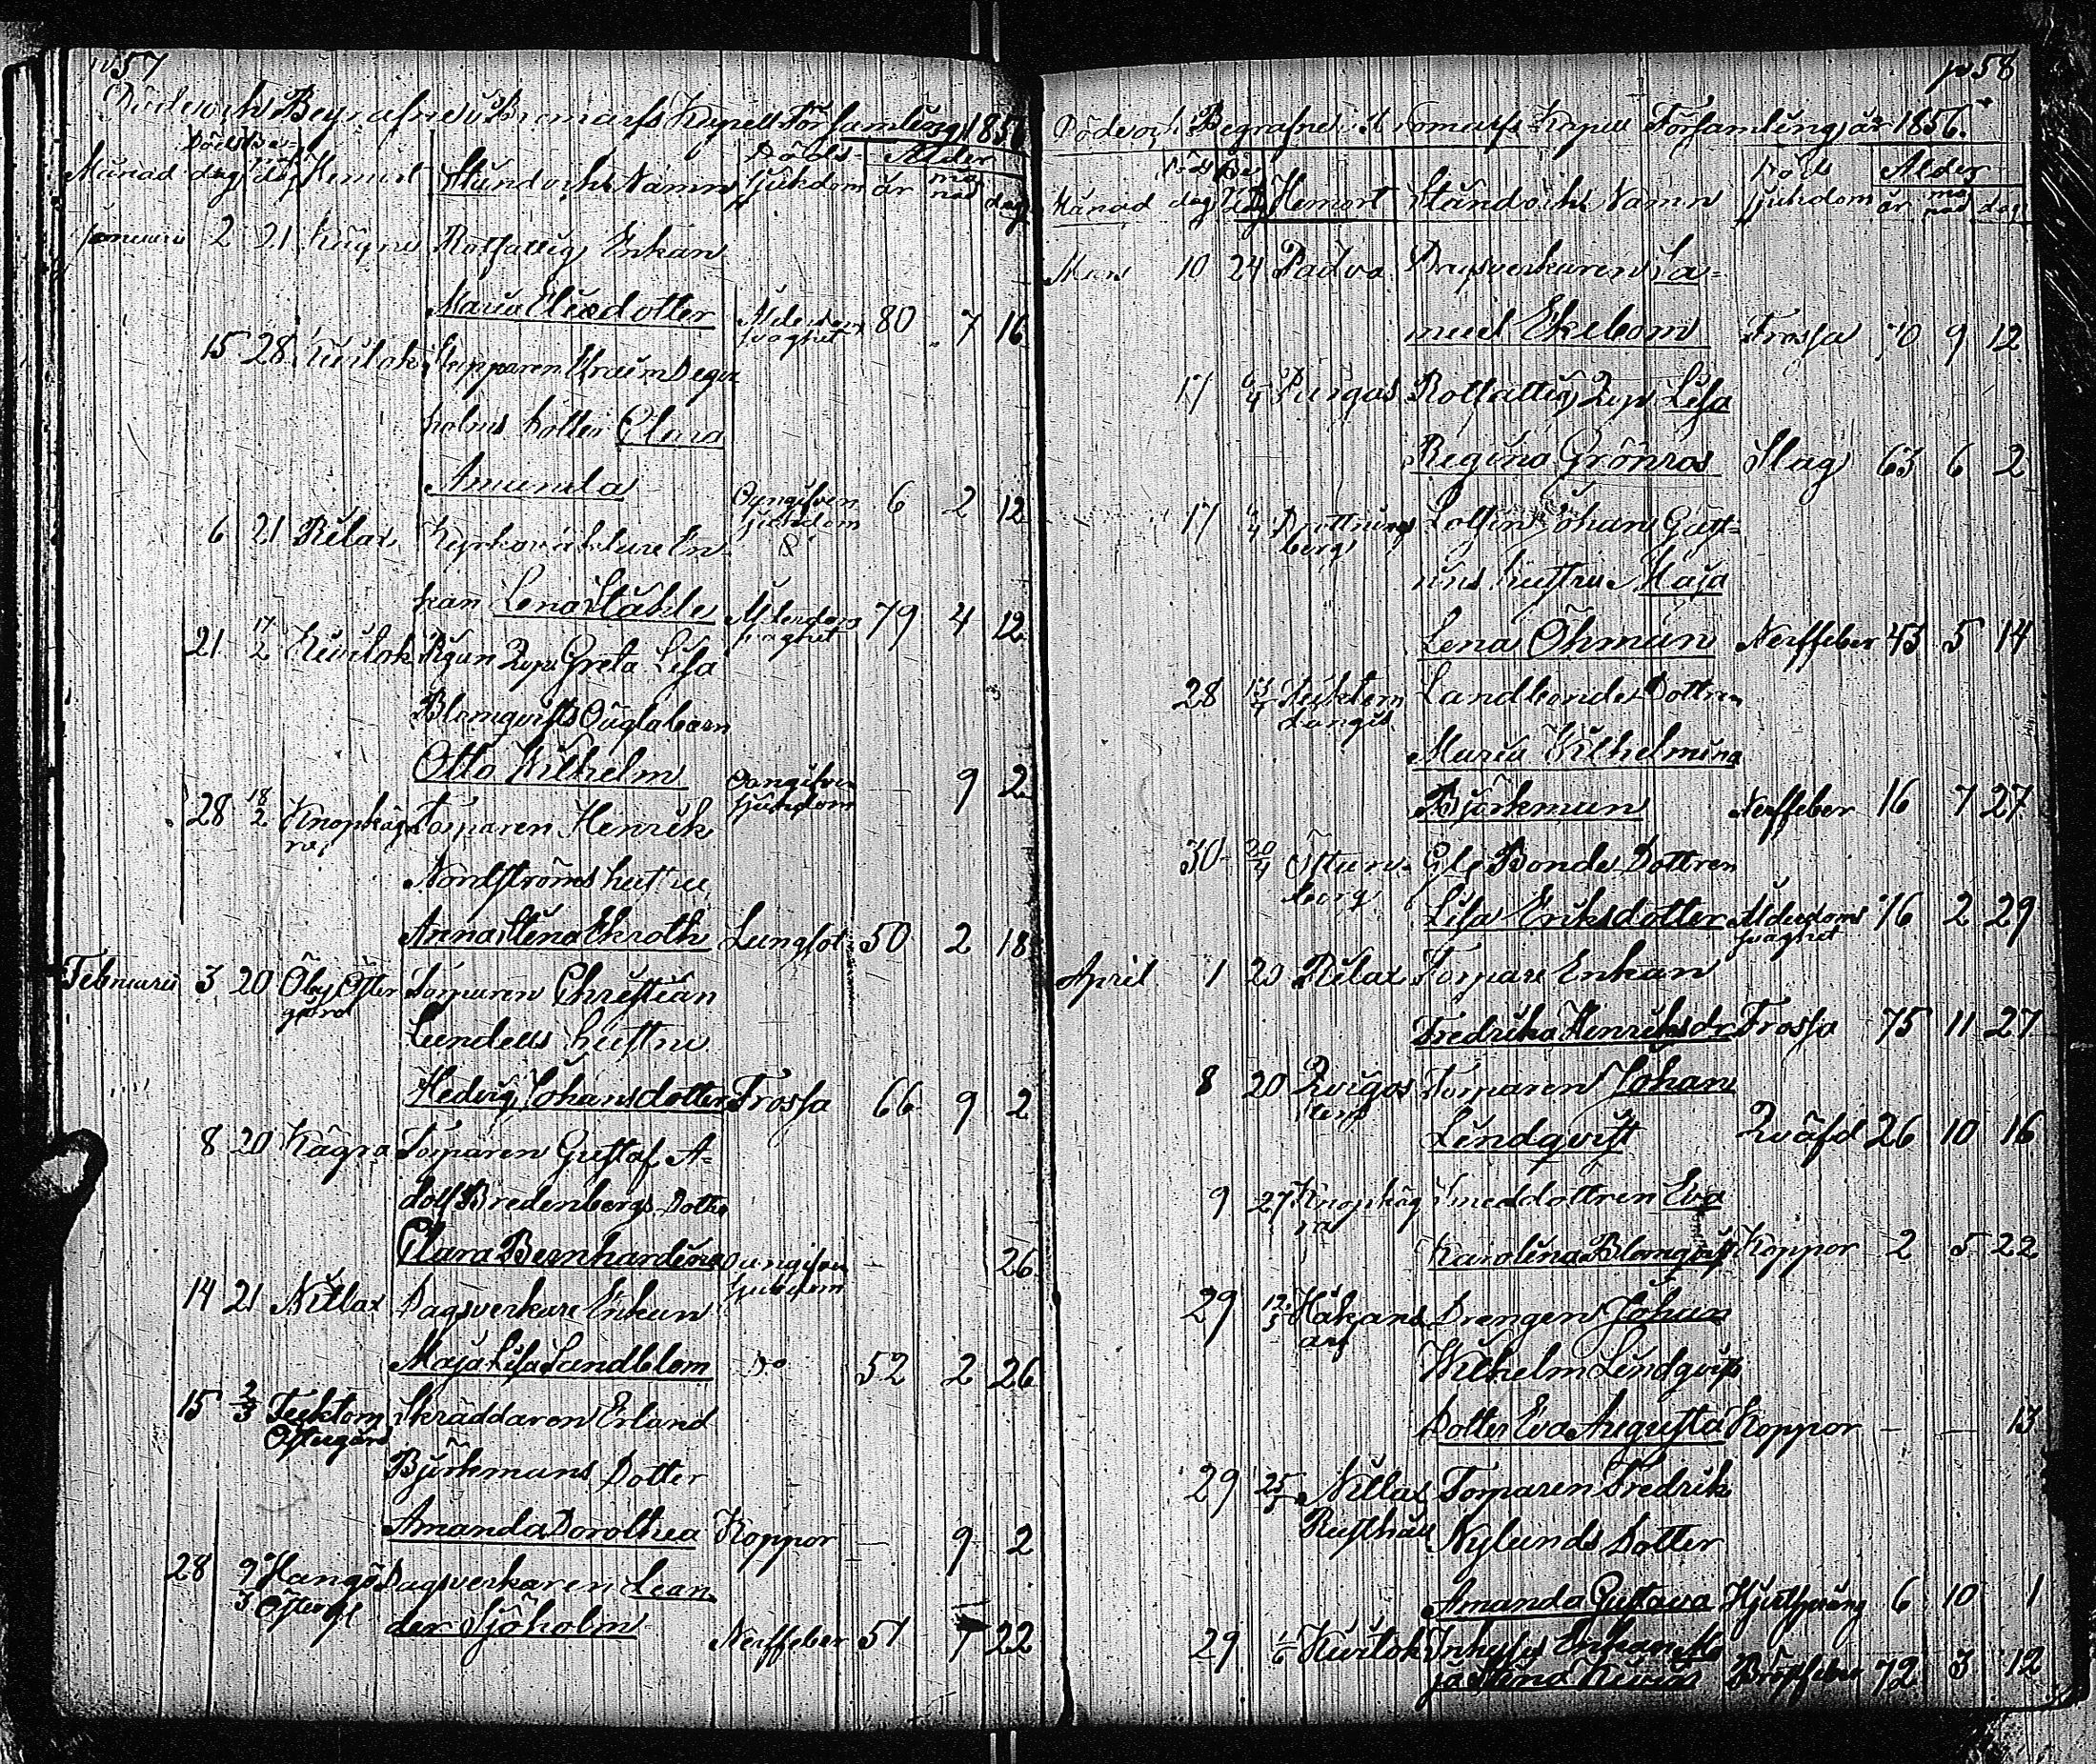 p 57
Döde och Begrafne i Bromarfs Kapell Församling 1856
Döds Be-
Döds- Ålder
Månad dag dag Hemort Stånd och Namn sjukdom år må nad dag
Januarii 2 21 Kägra Rotfattig Enkan
Maria Elisdotter Ålderdoms svaghet 80 7 16
15 28 Kuilok Torpparen Efraim Sege
holms dotter Clara
Amanda Oangifven sjukdom 6 2 12
6 21 Rilax Kyrkoväktare En
kan Lena Ståhle Ålderdoms svaghet 79 4 12
21 17/2 Kuilok Pigan Greta Lisa
Blomqvists Oägta barn
Otto Wilhelm Oangifven sjukdom 9 2
28 18/2 Knopkäg ra Torparen Henrik
Nordströms hustru
Anna Stena Ekroth Lungsot 50 2 18
Februarii 3 20 Öby Öster gård Torparen Christian
Lundells hustru
Hedvig Johansdotter Frossa 66 9 2
8 20 Kägra Torparen Gustaf A-
dolf Bredenbergs Dotter
Clara Bernhardina Oangifven sjukdom 26
14 21 Nitlax Dagsverkare Enkan
Maja Lisa Sandblom Do 52 2 26
15 2/3 Tecktom Östergård Skräddaren Erland
Björkmans Dotter
Amanda Dorothea Koppor 9 2
28 9/3 Hangö Dagsverkaren Lean
der Sjöholm Nerffeber 51 7 22
p 58
Döde och Begrafne i Bromarfs Kapell Församling år 1856.
Döds Be
Döds Ålder
Månad dag dag Hemort Stånd och Namn sjukdom år må nad dag
Mars 10 24 Padva Dagsverkaren Sa-
muel Ekebom Frossa 70 9 12
17 6/4 Purgas Rotfattig Lisa
Regina Grönros Slag 63 6 2
17 6/4 Drottnings berg Lotsen Johan Gust-
hustru Maja
Lena Öhman Nerffeber 43 5 14
28 13/4 Tecktom Landbonde Dottren
Maria Wilhelmina
Björkman Nerffeber 16 7 27
30 20/4 Bonde Dottren
Lisa Eriksdotter Ålderdoms svaghet 76 2 29
April 1 20 Rilax Torpare Enkan
Fredrika Henriksdr Frossa 75 11 27
8 20 Torparen Johan
Lindqvist Qväfd 26 10 16
9 27 Knopkäg ra Smeddottren Eva
Karolina Blomqvist Koppor 2 5 22
29 12/5 Håkans arf Drengen Johan
Wilhelm Lindqvists
Dotter Eva Augusta Koppor — — 13
29 25/5 Nitlax Rusthåll Torparen Fredrik
Nylunds Dotter
Amanda Gustava Hjertsprång 6 10 1
29 1/6 Kuilok Inhyses Enkan Ma
ja Stina Bröstfeber 72 3 12